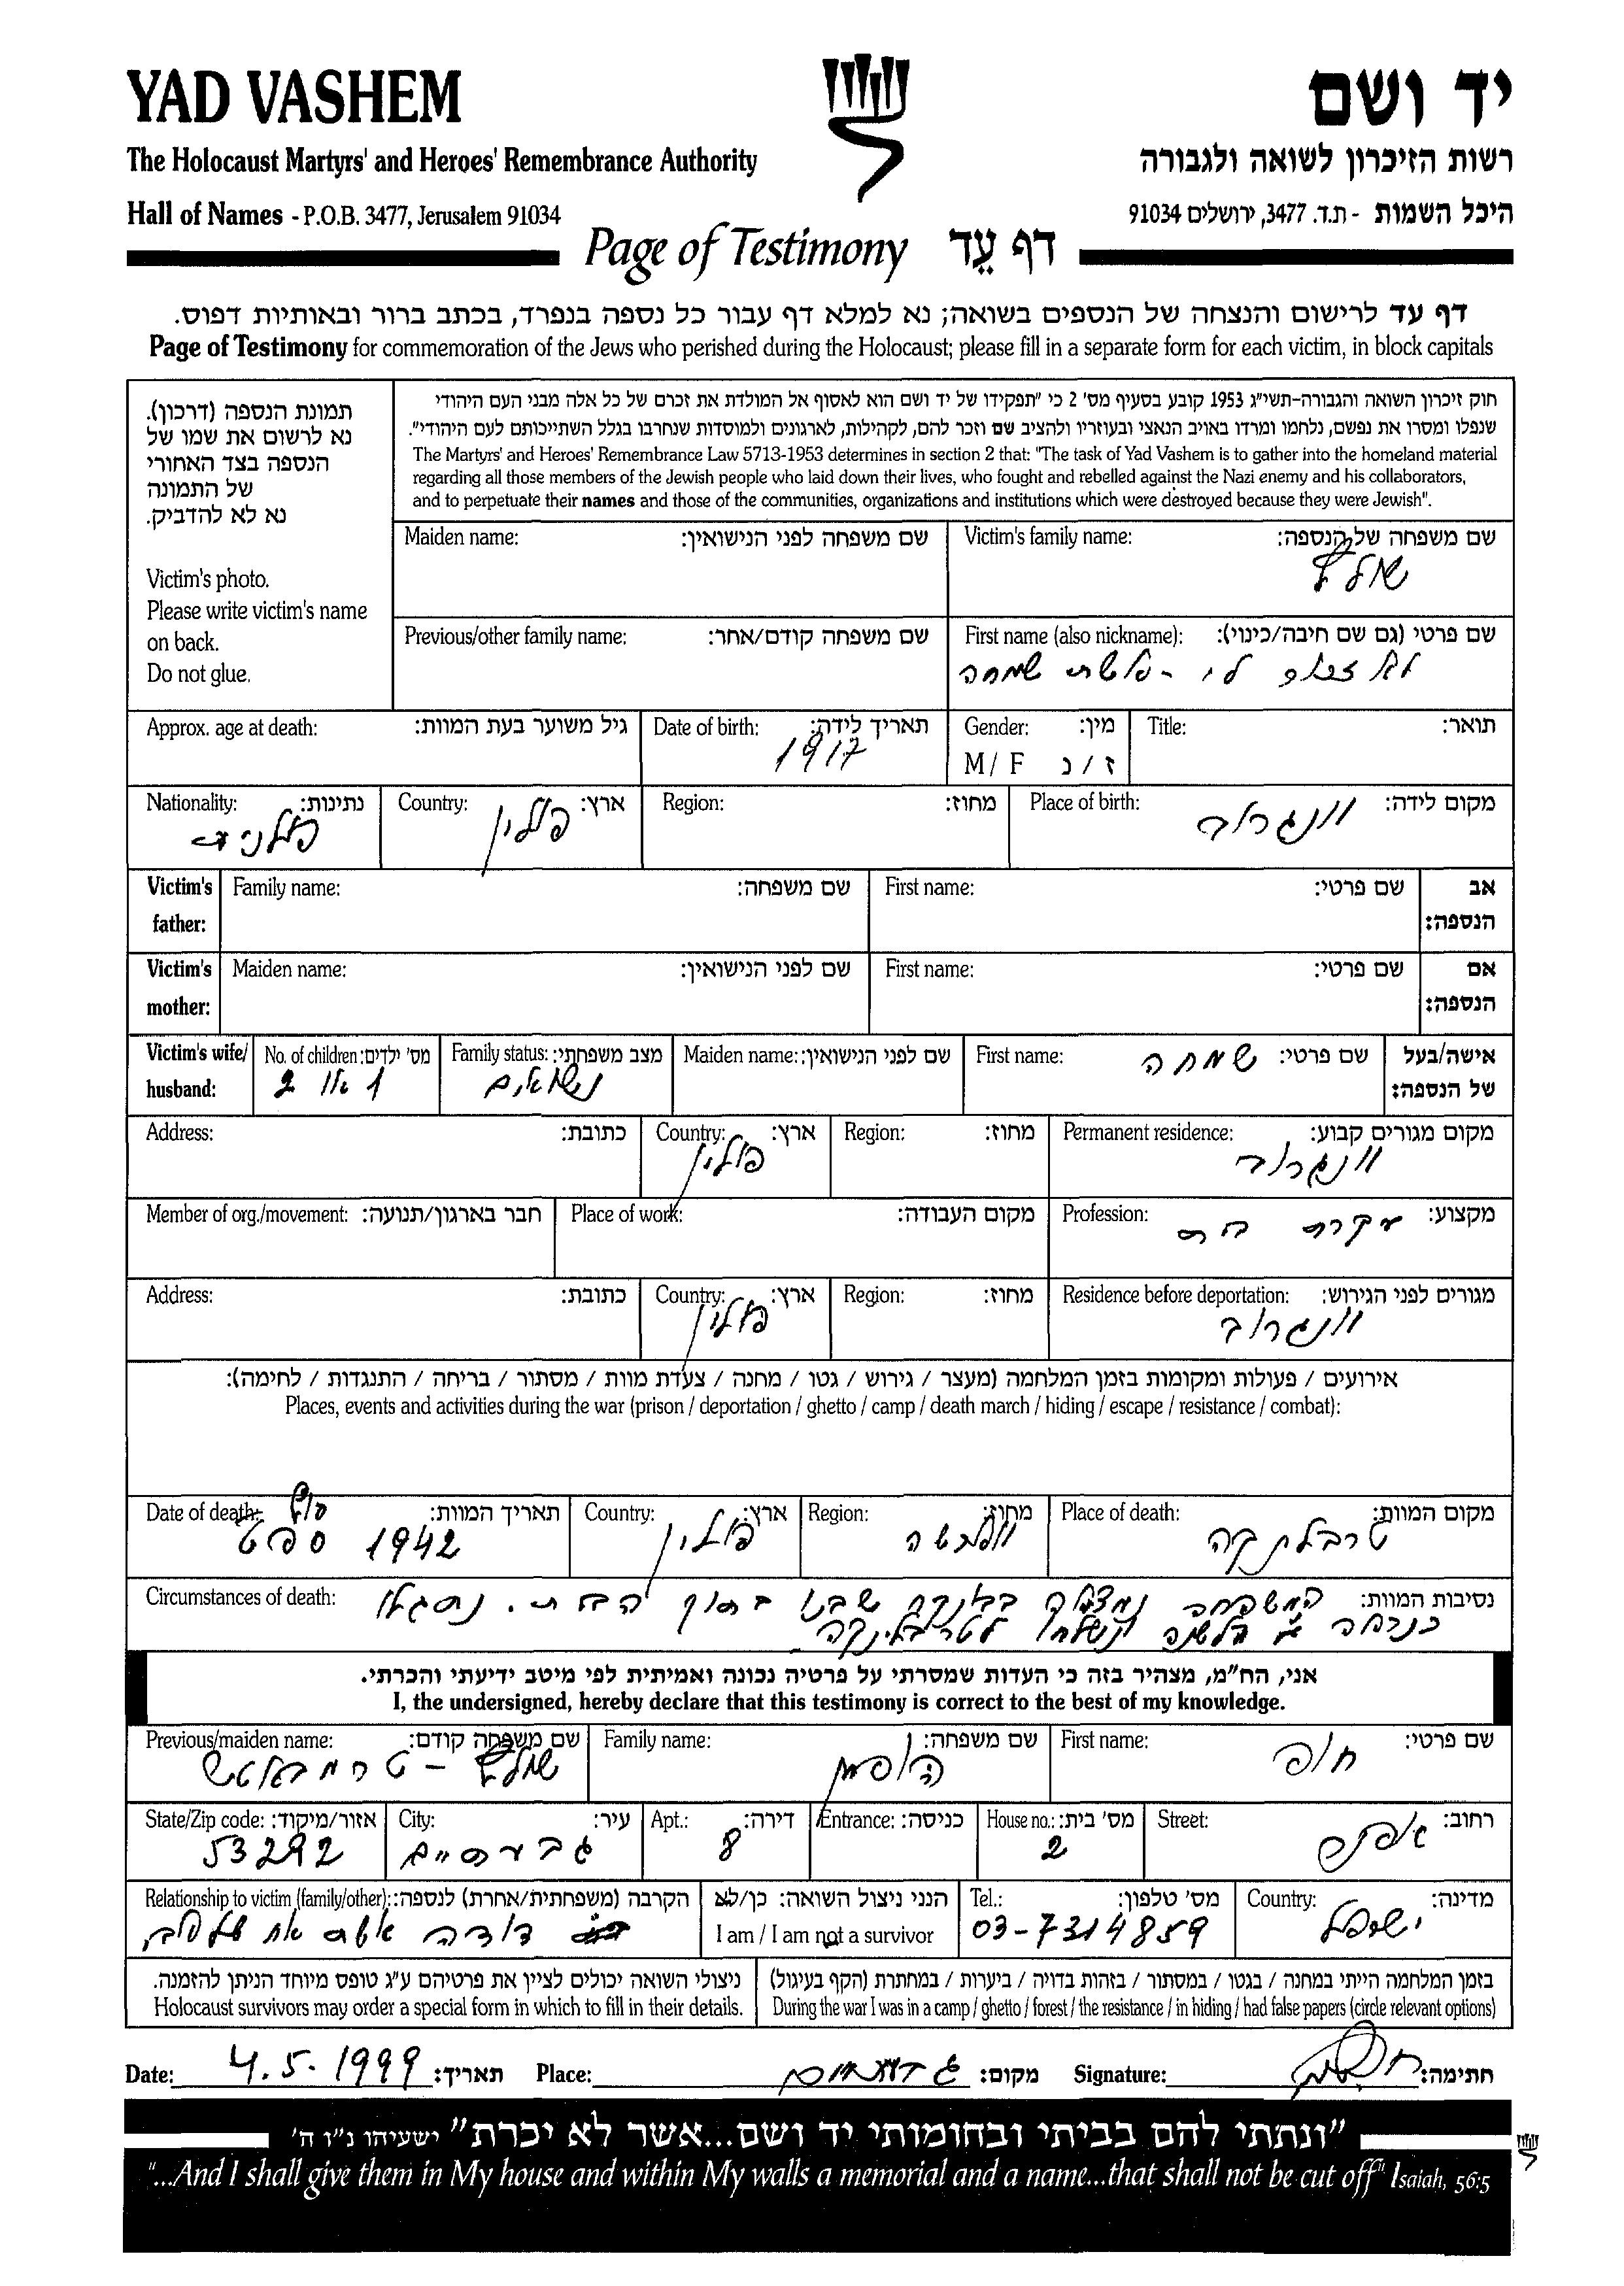 YAD VASHEM
יד ושם
The Holocaust Martyrs' and Heroes' Remembrance Authority
רשות הזיכרון לשואה ולגבורה
Hall of Names - P.O.B. 3477, Jerusalem 91034
היכל השמות - ת.ד. 3477, ירושלים 91034
Page of Testimony דף עֵד
דף עד לרישום והנצחה של הנספים בשואה; נא למלא דף עבור כל נספה בנפרד, בכתב ברור ובאותיות דפוס.
Page of Testimony for commemoration of the Jews who perished during the Holocaust; please fill in a separate form for each victim, in block capitals
תמונת הנספה (דרכון).
נא לרשום את שמו של
הנספה בצד האחורי
של התמונה
נא לא להדביק.
Victim's photo.
Please write victim's name
on back.
Do not glue.
חוק זיכרון השואה והגבורה-תשי"ג 1953 קובע בסעיף מס' 2 כי "תפקידו של יד ושם הוא לאסוף אל המולדת את זכרם של כל אלה מבני העם היהודי
שנפלו ומסרו את נפשם, נלחמו ומרדו באויב הנאצי ובעוזריו ולהציב שם וזכר להם, לקהילות, לארגונים ולמוסדות שנחרבו בגלל השתייכותם לעם היהודי".
The Martyrs' and Heroes' Remembrance Law 5713-1953 determines in section 2 that: "The task of Yad Vashem is to gather into the homeland material
regarding all those members of the Jewish people who laid down their lives, who fought and rebelled against the Nazi enemy and his collaborators,
and to perpetuate their names and those of the communities, organizations and institutions which were destroyed because they were Jewish".
Victim's family name: שם משפחה של הנספה:
שולץ
Maiden name: שם משפחה לפני הנישואין:
First name (also nickname): שם פרטי (גם שם חיבה/כינוי):
לא זכור לי - אשת שמחה
Previous/other family name: שם משפחה קודם/אחר:
Title: תואר:
Gender: מין:
M / F ז / נ
Date of birth: תאריך לידה:
1917
Approx. age at death: גיל משוער בעת המוות:
Place of birth: מקום לידה:
וונגרוב
Region: מחוז:
Country: ארץ:
פולין
Nationality: נתינות:
פולנית
Victim's father: אב הנספה:
First name: שם פרטי:
Family name: שם משפחה:
Victim's mother: אם הנספה:
First name: שם פרטי:
Maiden name: שם לפני הנישואין:
Victim's wife/ husband: אישה/בעל של הנספה:
First name: שם פרטי: שמחה
Maiden name: שם לפני הנישואין:
Family status: מצב משפחתי:
נשואים
No. of children: מס' ילדים:
1 או 2
Permanent residence: מקום מגורים קבוע:
וונגרוב
Region: מחוז:
Country: ארץ:
פולין
Address: כתובת:
Profession: מקצוע: עקרת בית
Place of work: מקום העבודה:
Member of org./movement: חבר בארגון/תנועה:
Residence before deportation: מגורים לפני הגירוש:
וונגרוב
Region: מחוז:
Country: ארץ:
פולין
Address: כתובת:
אירועים / פעולות ומקומות בזמן המלחמה (מעצר / גירוש / גטו / מחנה / צעדת מוות / מסתור / בריחה / התנגדות / לחימה):
Places, events and activities during the war (prison / deportation / ghetto / camp / death march / hiding / escape / resistance / combat):
Place of death: מקום המוות:
טרבלינקה
Region: מחוז:
Country: ארץ:
פולין
Date of death: תאריך המוות:
סוף
ספט 1942
Circumstances of death: נסיבות המוות: המשפחה בבונקר שבנו בתוך הבית. נתגלו
לטרבלינקה.
אני, הח"מ, מצהיר בזה כי העדות שמסרתי על פרטיה נכונה ואמיתית לפי מיטב ידיעתי והכרתי.
I, the undersigned, hereby declare that this testimony is correct to the best of my knowledge.
First name: שם פרטי:
Family name: שם משפחה:
הופמן
Previous/maiden name: שם משפחה קודם:
שולץ -
Street: רחוב:
House no.: מס' בית:
2
Entrance: כניסה:
Apt.: דירה:
8
City: עיר:
גבעתיים
State/Zip code: אזור/מיקוד:
53292
Country: מדינה:
ישראל
Tel.: מס' טלפון:
03-7314859
הנני ניצול השואה: כן/לא
I am / I am not a survivor
Relationship to victim (family/other): הקרבה (משפחתית/אחרת) לנספה:
דודה אשת אח של אבי
בזמן המלחמה הייתי במחנה / בגטו / במסתור / בזהות בדויה / ביערות / במחתרת (הקף בעיגול)
During the war I was in a camp / ghetto / forest / the resistance / in hiding / had false papers (circle relevant options)
ניצולי השואה יכולים לציין את פרטיהם ע"ג טופס מיוחד הניתן להזמנה.
Holocaust survivors may order a special form in which to fill in their details.
Date: 4.5.1999 תאריך: Place: גבעתיים מקום: Signature: חתימה:
"ונתתי להם בביתי ובחומותי יד ושם...אשר לא יכרת" ישעיהו נ"ו ה'
"...And I shall give them in My house and within My walls a memorial and a name...that shall not be cut off" Isaiah, 56:5